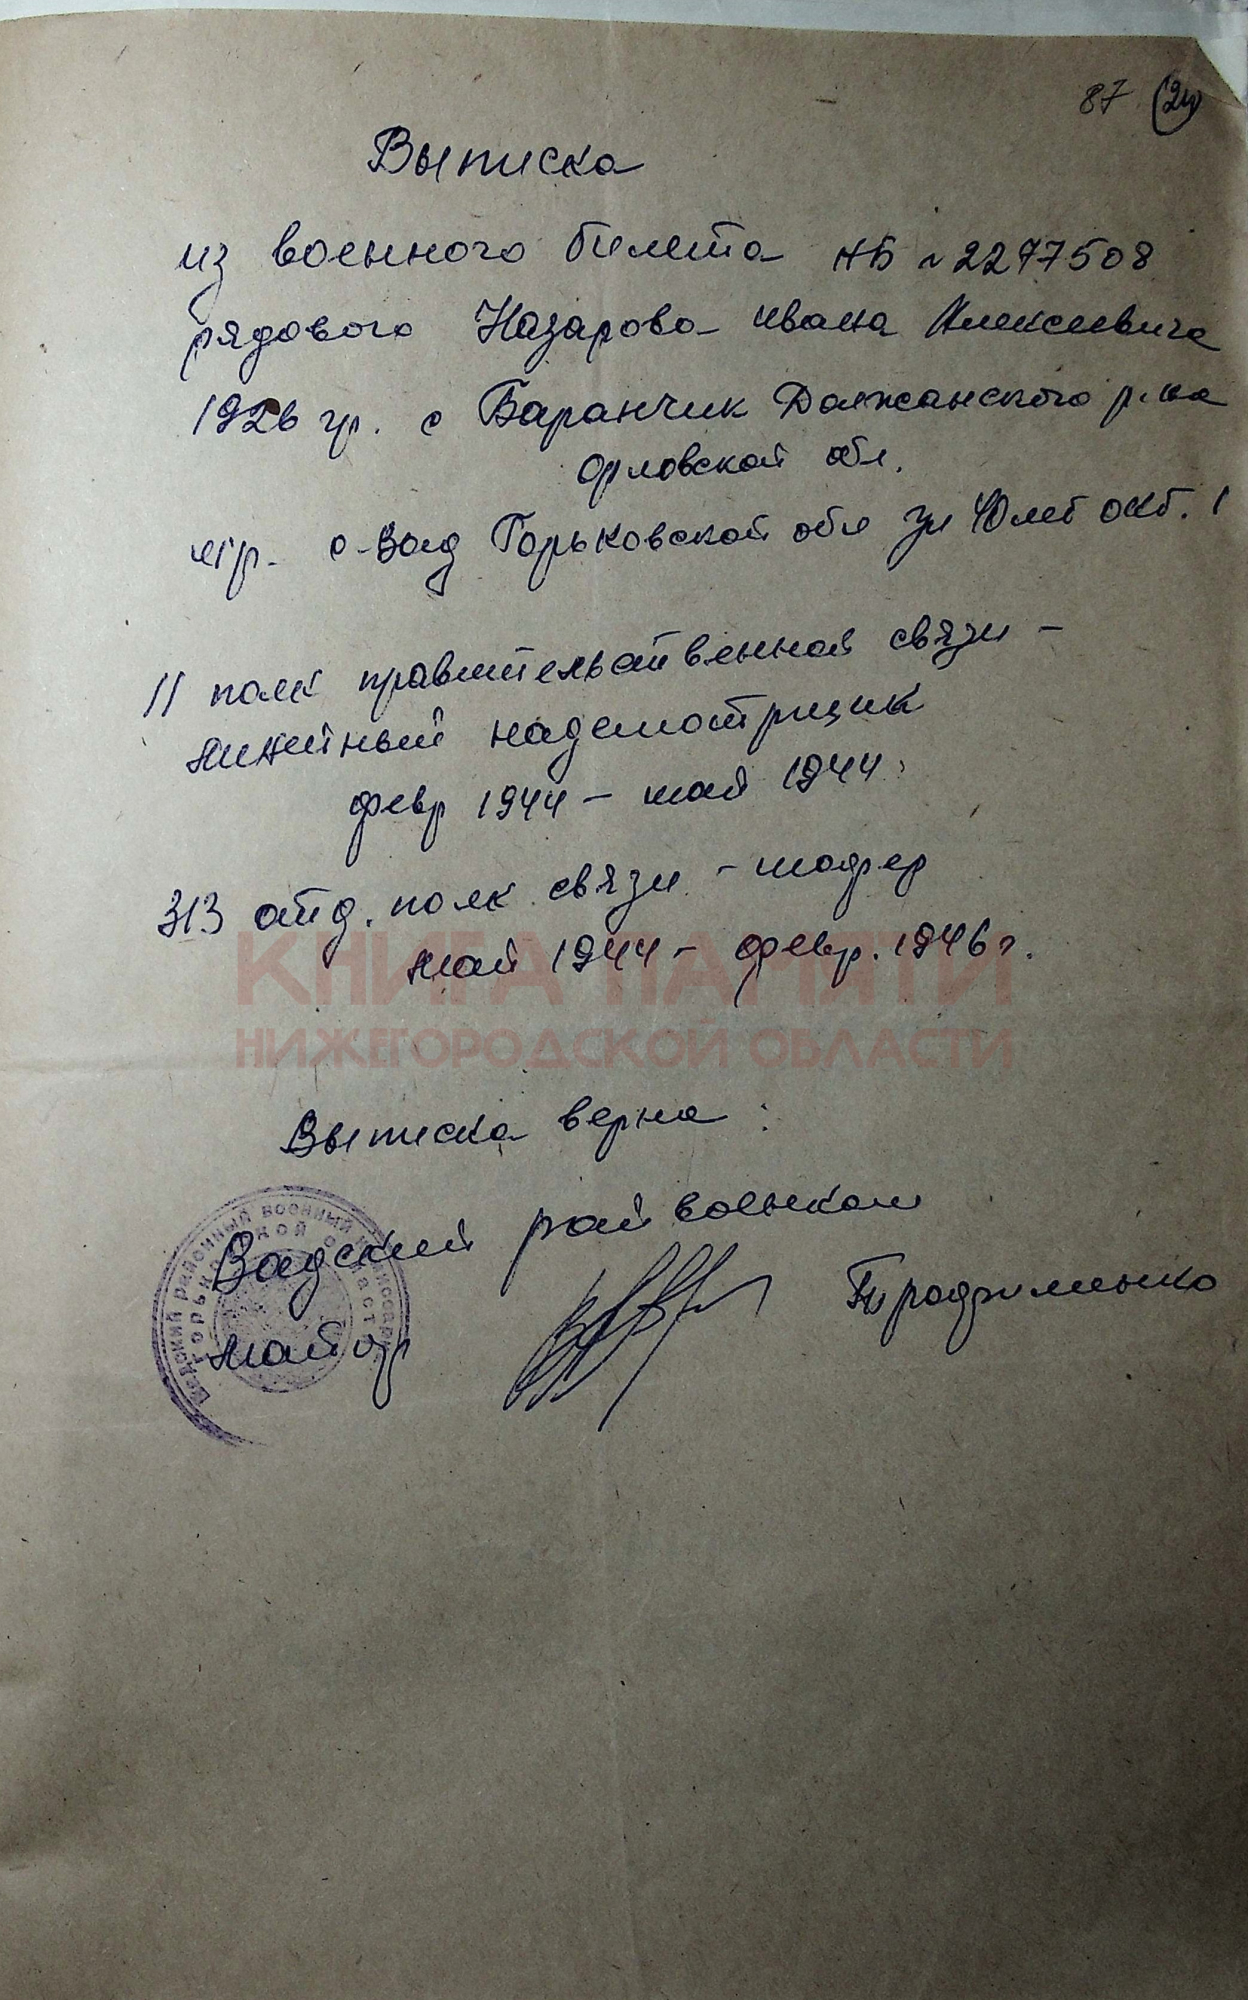 87 (24)
Выписка
из военного билета НБ № 2277508
рядового Назарова Ивана Алексеевича
1926 гр. с Баранчик Должанского р-на
Орловской обл.
пр. с-Вад Горьковской обл ул 40 лет окт. 1
11 полк правительственной связи -
линейный надсмотрщик
февр 1944 - май 1944
313 отд. полк связи - шофер
май 1944 - февр. 1946 г.
КНИГА ПАМЯТИ
НИЖЕГОРОДСКОЙ ОБЛАСТИ
Выписка верна:
Вадский райвоенком
майор Трофименко
Вадский районный военный комиссариат
Горьковской област